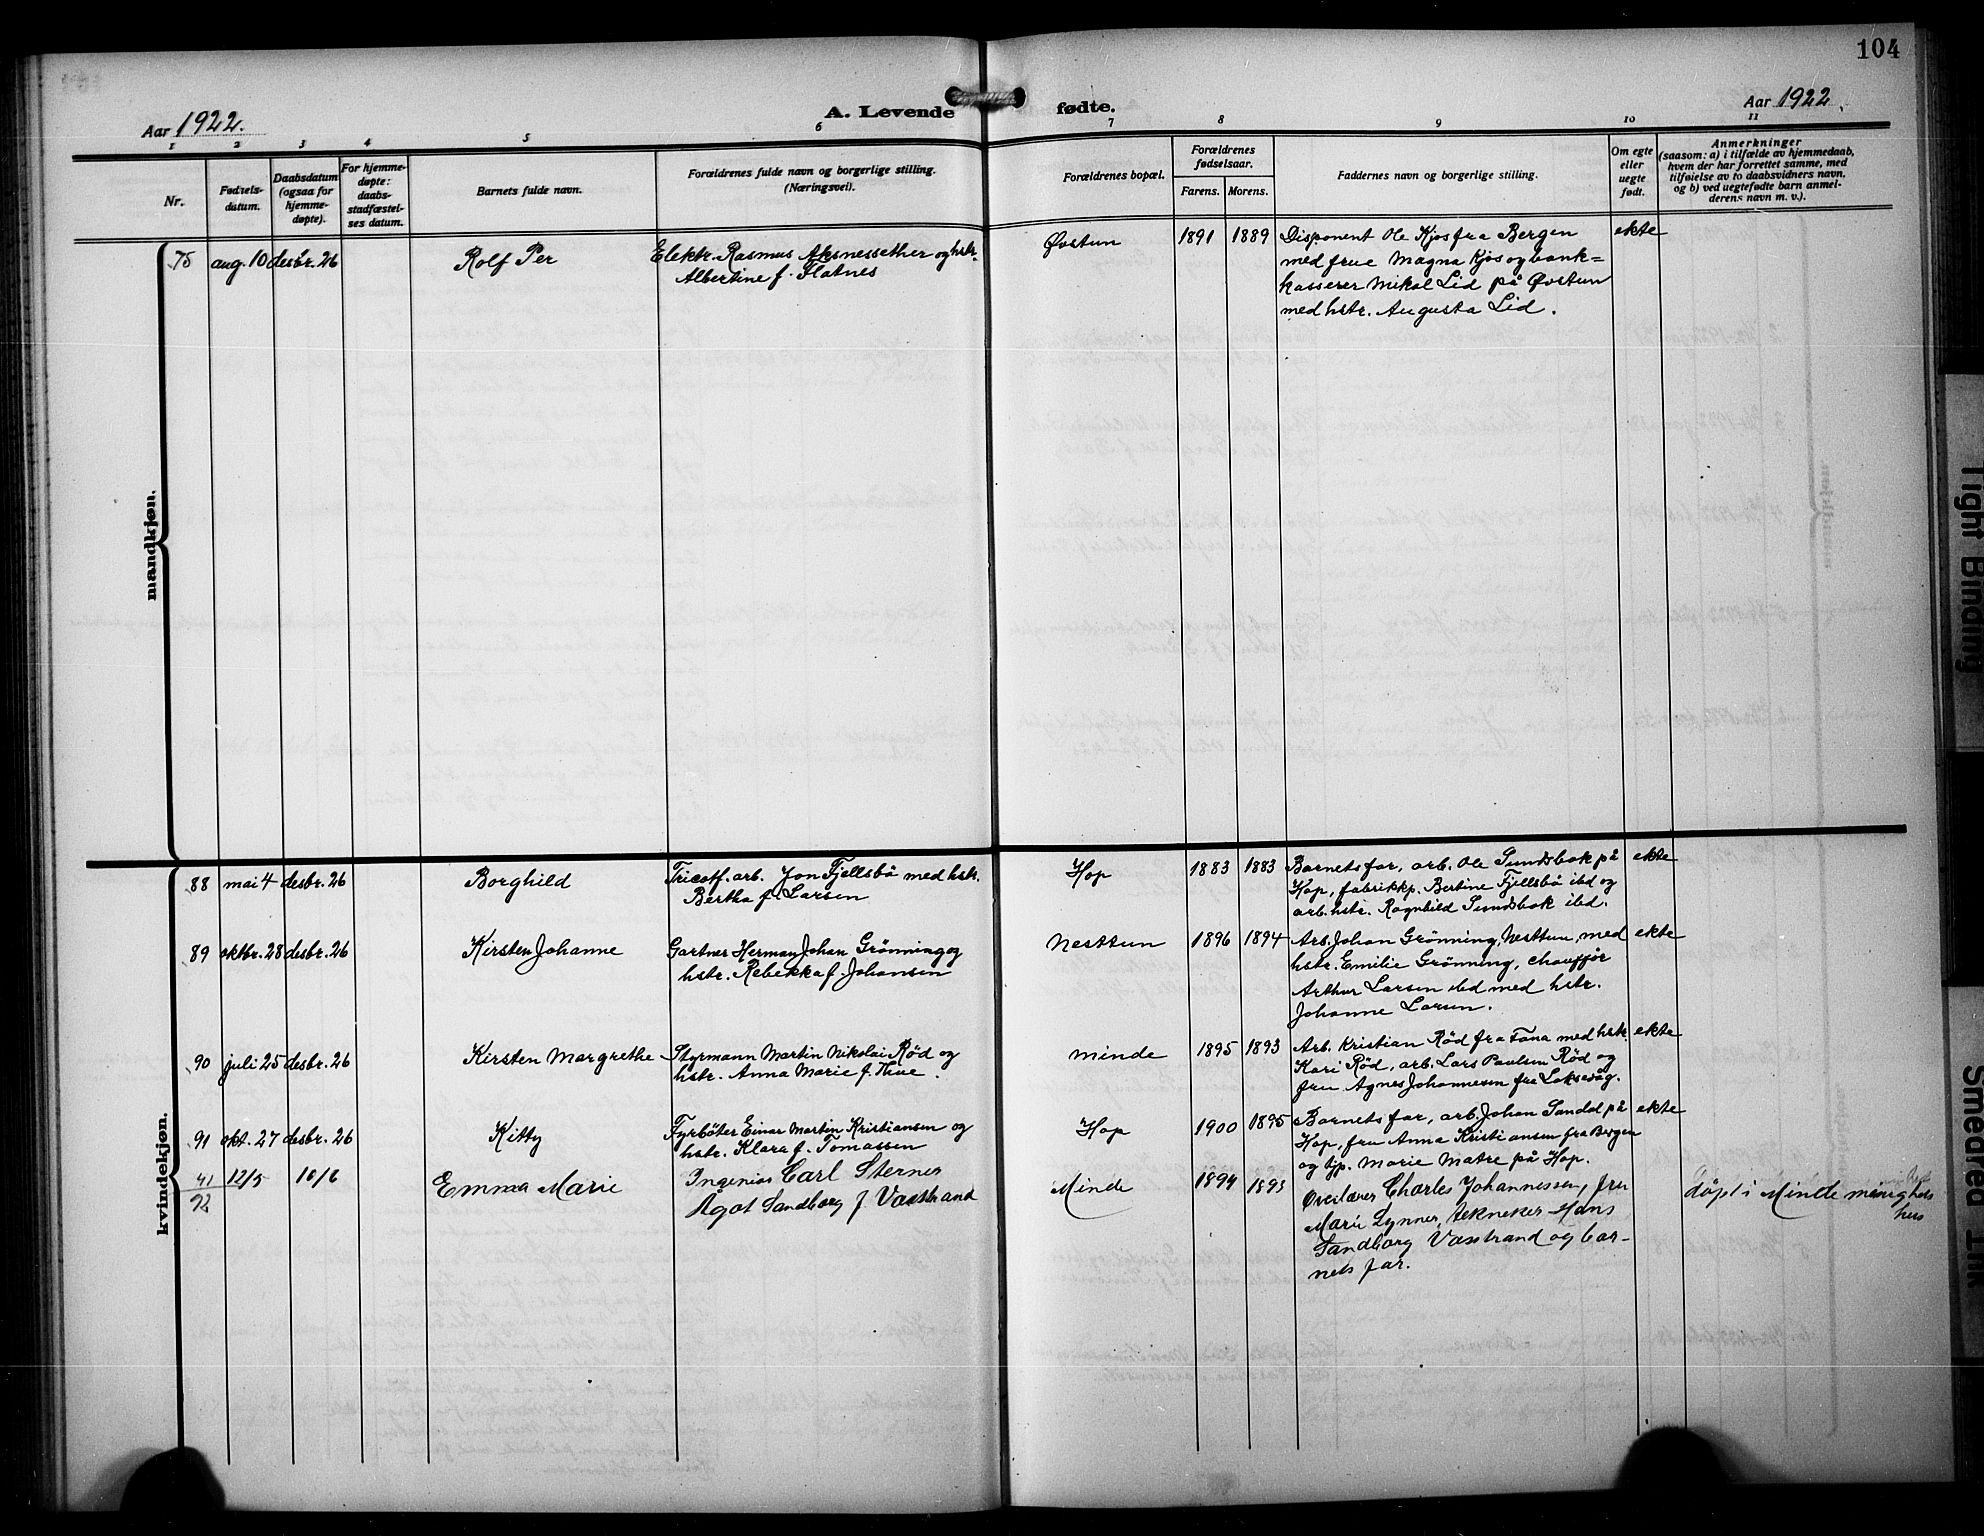 104
Aar 1922.
A. Levende fødte.
Aar 1922.
1 2 3 4 5 6 7 8 9 10 11
Nr.
Fødsels-
datum.
Daabsdatum
(ogsaa for
hjemme-
døpte).
For hjemme-
døpte:
daabs-
stadfæstel-
ses datum.
Barnets fulde navn.
Forældrenes fulde navn og borgerlige stilling.
(Næringsvei).
Forældrenes bopæl.
Forældrenes
fødselsaar.
Farens. Morens.
Faddernes navn og borgerlige stilling.
Om egte
eller
uegte
født.
Anmerkninger
(saasom: a) i tilfælde av hjemmedaab,
hvem der har forrettet samme, med
tilføielse av to daabsvidners navn,
og b) ved uegtefødte barn anmel-
derens navn m. v.).
mandkjøn.
75 aug. 10 desbr. 26 Rolf Per
Elektr. Rasmus Aksnessether og hstr.
Albertine f. Flatnes
Øvstun 1891 1889
Disponent Ole Kjos fra Bergen
med frue Magna Kjos og bank=
kasserer Mikal Lid på Øvstun
med hstr. Augusta Lid.
ekte
kvindekjøn.
88 mai 4 desbr. 26 Borghild
Tricotf. arb. Jon Fjellsbö med hstr.
Bertha f. Larsen
Hop 1883 1883
Barnets far, arb. Ole Sundsbak på
Hop, fabrikkp. Bertine Fjellsbö ibd og
arb. hstr. Ragnhild Sundsbak ibd.
ekte
89 oktbr. 28 desbr. 26 Kirsten Johanne
Gartner Herman Johan Grönning og
hstr. Rebekka f. Johansen
Nesttun 1896 1894
Arb. Johan Grönning, Nesttun, med
hstr. Emilie Grönning, chauffør
Arthur Larsen ibd med hstr.
Johanne Larsen.
ekte
90 juli 25 desbr. 26 Kirsten Margrethe
Styrmann Martin Nikolai Rød og
hstr. Anna Marie f. Thue.
Minde 1895 1893
Arb. Kristian Rød fra Fana med hstr.
Kari Rød, arb. Lars Paulsen Rød og
fru Agnes Johannesen fra Laksevåg.
ekte
91 okt. 27 desbr. 26 Kitty
Fyrböter Einar Martin Kristiansen og
hstr. Klara f. Tomassen
Hop 1900 1895
Barnets far, arb. Johan Sandal på
Hop, fru Anna Kristiansen fra Bergen
og tjp. Marie Matre på Hop.
ekte
41
92
12/5 18/6 Emma Marie
Ingeniør Carl Sterner
Ågot Sandborg f. Vasstrand
Minde 1894 1893
Overlærer Charles Johannessen, fru
Marie Lynner, tekneker Hans
Sandborg Vasstrand og bar-
nets far.
døpt i Minde menighets
hus
Tight Binding
Smeared Ink